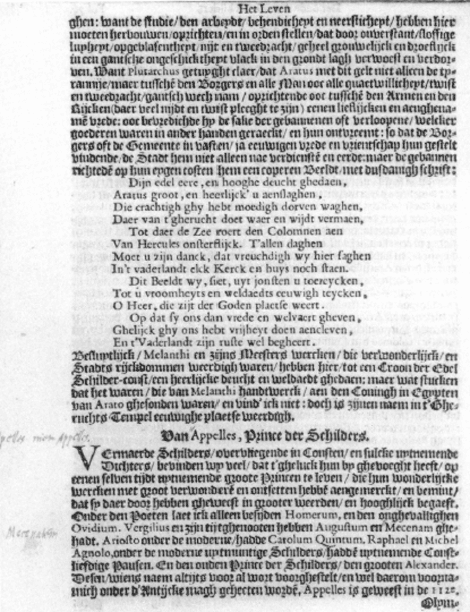 Het Leven
ghen: want de studie/ den arbeydt/ behendicheyt en neersticheyt/ hebben hier
moeten hervouwen/ oprichten/ en in orden stellen/ dat door onverstant/ sloffige
luyheyt/ opgeblasentheyt/ nijt en tweedracht/ geheel grouwelijck en droeflijck
in een gantsche ongeschicktheyt vlack in den grondt lagh verwoest en verdor-
ven. Want Plutarchus getuyght claer/ dat Aratus met dit gelt niet alleen de ty-
rannije/ maer tusschē den Borgers en alle Man ooc alle quaetwillicheyt/ twist
en tweedracht/ gantsch wech nam/ oprichtende ooc tusschē den Armen en den
Rijcken/ daer veel nijdt en twist pleeght te zijn/ eenen lieflijcken en aengena-
mē vrede: ooc bevredichde hy de sake der gebannenen oft verloopene/ welcker
goederen waren in ander handen geraeckt/ en hun ontvreemt: so dat de Bor-
gers oft de Gemeente in vasten/ ja eeuwigen vrede en vrientschap hun gestelt
vindende/ de Stadt hem niet alleen nae verdienstē en eerde: maer de gebannen
richtedē op hun eygen costen hem een coperen Beeldt/ met dusdanigh schrift:
Dijn edel eere, en hooghe deucht ghedaen,
Aratus groot, en heerlijck' u aenslaghen,
Die crachtigh ghy hebt moedigh dorven waghen,
Daer van t'gherucht doet waer en wijdt vermaen,
Tot daer de Zee roert den Colomnen aen
Van Hercules onsterflijck. T'allen daghen
Moet u zijn danck, dat vreuchdigh wy hier saghen
In't vaderlandt elck Kerck en huys noch staen.
Dit Beeldt wy, siet, uyt jonsten u toereycken,
Tot u vroomheyts en weldaedts eeuwigh teycken,
O Heer, die zijt der Goden plaetse weert.
Op dat sy ons dan vrede en welvaert gheven,
Ghelijck ghy ons hebt vrijheyt doen aencleven,
En t'Vaderlandt zijn ruste wel begheert.
Besluytlijck/ Melanthi en zijns Meesters wercken/ die verwonderlijck/ en
Stadts rijckdommen weerdigh waren/ hebben hier/ tot een Croon der Edel
Schilder-const/ een heerlijcke deucht en weldaedt ghedaen: maer wat stucken
dat het waren/ die van Melanthi handtwerck/ aen den Coningh in Egypten
van Arato ghesonden waren/ en vind' ick niet: doch is zijnen naem in t'Ghe-
ruchts Tempel eeuwighe plaetse weerdigh.
Van Appelles, Prince der Schilders.
VErmaerde Schilders/ overvliegende in Consten/ en sulcke uytnemende
Dichters/ bevinden wy veel/ dat t'gheluck hun by ghevoeght heeft/ op
eenen selven tijdt uytnemende groote Princen te leven/ die hun wonderlijcke
wercken met groot verwonderē en ontsetten hebbē aengemerckt/ en bemint/
dat sy daer door hebben gheweest in grooter weerden/ en hooghlijck begaeft.
Onder den Poeten laet ick alleen besijden Homerum, en den onghevalligen
Ovidium. Vergilius en zijn tijtghenooten hebben Augustum en Mecenam ghe-
hadt. Ariosto onder de moderne/ hadde Carolum Quintum. Raphael en Michel
Agnolo, onder de moderne uytmuntige Schilders/ haddē uytnemende Const-
liefdige Pausen. En den ouden Prince der Schilders/ den grooten Alexander.
Desen/ wiens naem altijts voor al wort voorghestelt/ en wel daerom voorna-
mlich onder d'Antijcke magh gheacht worden/ Appelles is geweest in de 112.
Olym-